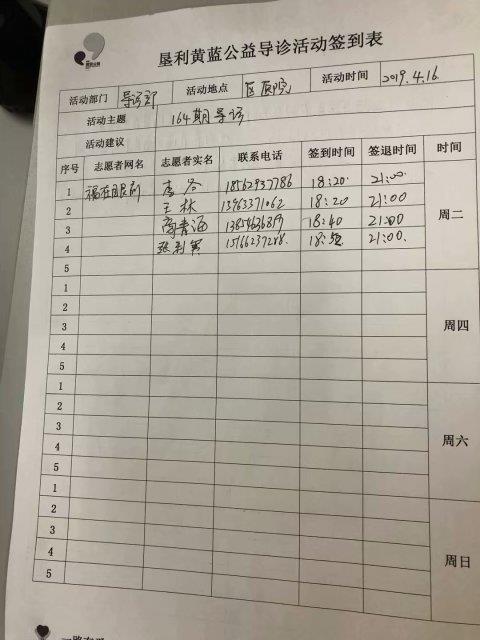 垦利黄蓝公益导诊活动签到表
活动部门 导诊部 活动地点 区医院 活动时间 2019.4.16
活动主题 164期导诊
活动建议
序号 志愿者网名 志愿者实名 联系电话 签到时间 签退时间 时间
1 18562937786 18:20 21:00
2 王林 13963371062 18:20 21:00 周二
3 18:40 21:00
4 21:00
5
1
2
3 周四
4
5
1
2
3 周六
4
5
1
2
3
4 周日
5